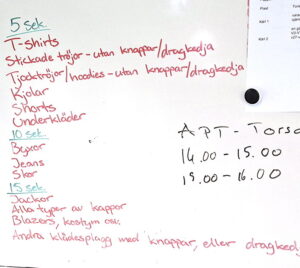 5 sek.
T-shirts
Stickade tröjor - utan knappar/dragkedja
Tjocktröjor/hoodies - utan knappar/dragkedja
Kjolar
Shorts
Underkläder
10 sek.
Byxor
Jeans
Skor
15 sek.
Jackor
Alla typer av kappor
Blazers, kostym osv.
Andra klädesplagg med knappar, eller dragked
APT - Torsd
14.00 - 15.00
15.00 - 16.00